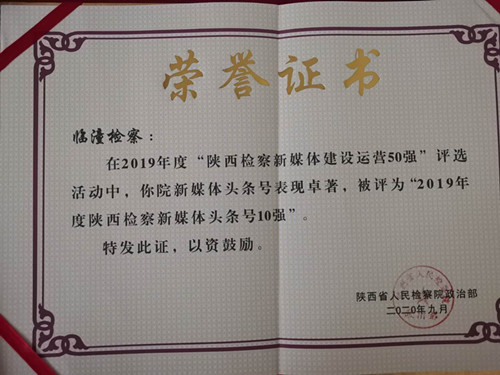 荣誉证书
临潼检察：
在2019年度“陕西检察新媒体建设运营50强”评选
活动中，你院新媒体头条号表现卓著，被评为“2019年
度陕西检察新媒体头条号10强”。
特发此证，以资鼓励。
陕西省人民检察院政治部
二〇二〇年九月